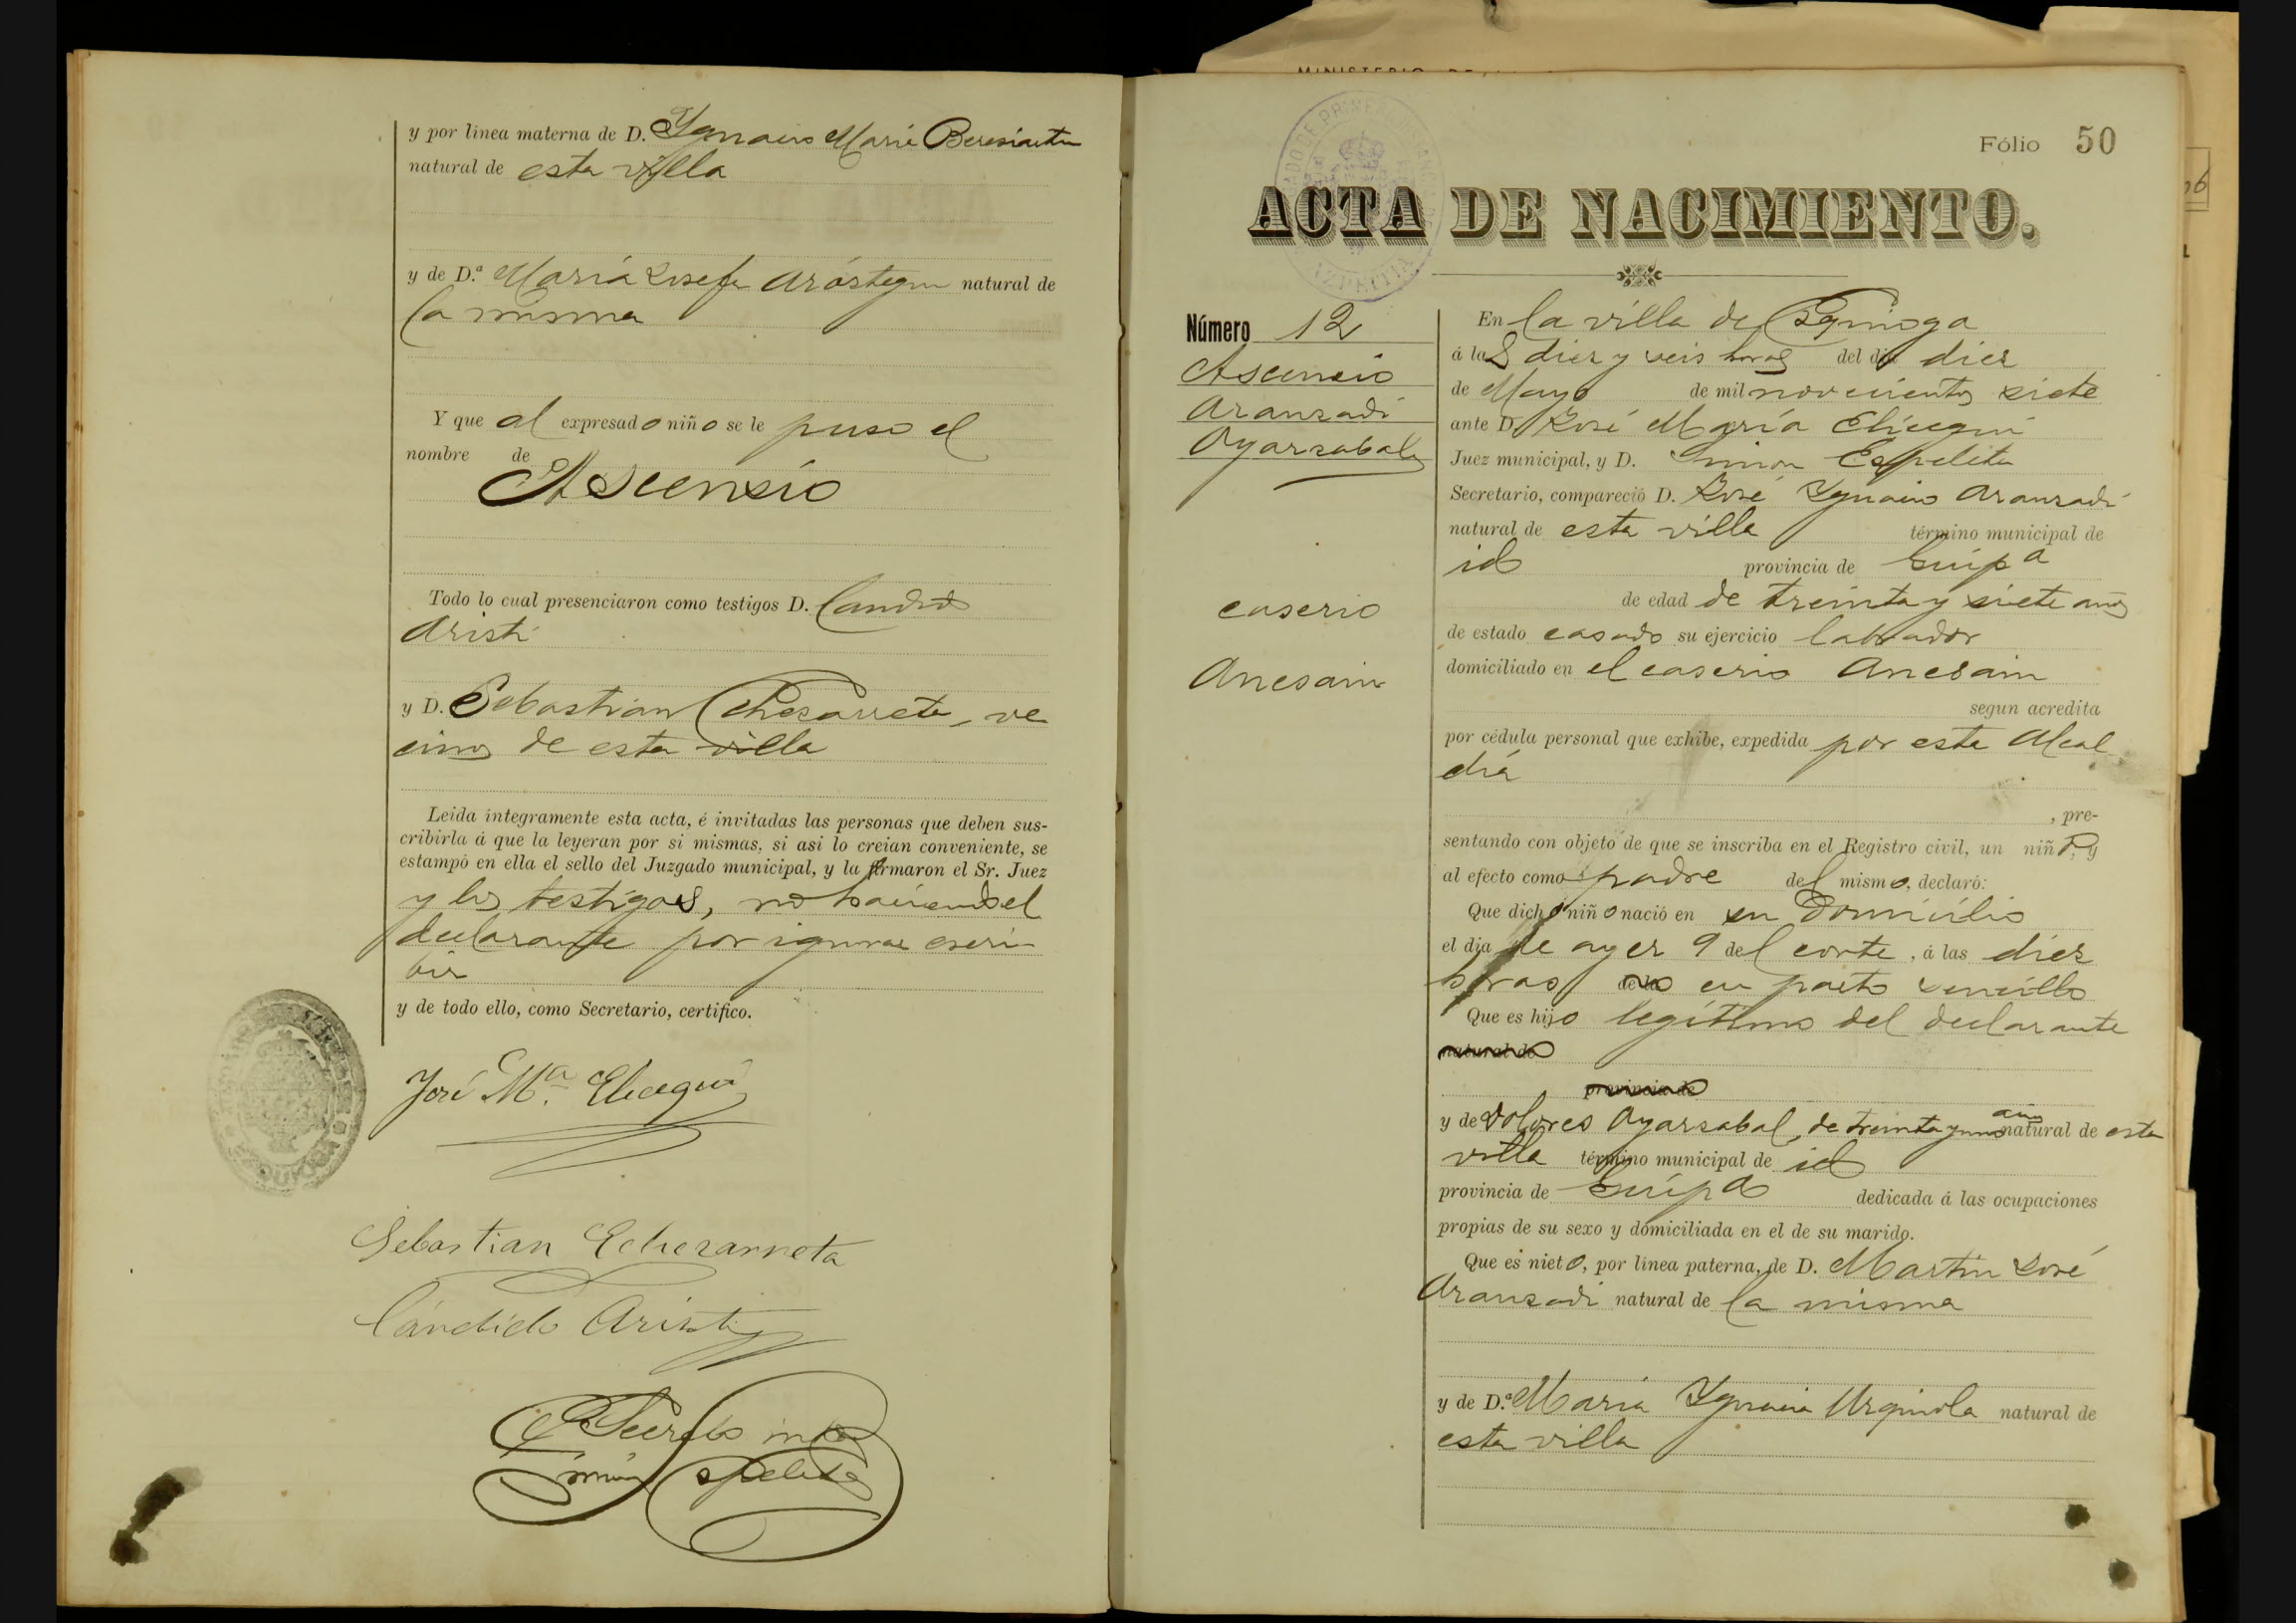 y por linea materna de D. Ygnacio María Beresiartu
natural de esta villa
y de D.ª María Josefa Aróstegui natural de
la misma
Y que al expresado niño se le puso el
nombre de
Ascensio
Todo lo cual presenciaron como testigos D. Candido
Aristi
y D. Sebastian Echesarreta, ve
cinos de esta villa
Leida íntegramente esta acta, é invitadas las personas que deben sus-
cribirla á que la leyeran por si mismas, si asi lo creian conveniente, se
estampó en ella el sello del Juzgado municipal, y la firmaron el Sr. Juez
y los testigos, no haciendo el
declarante por ignorar escri
bir
y de todo ello, como Secretario, certifico.
José M.ª Elicegui
Sebastian Echezarreta
Cándido Aristi
Simon Espeleta
MINISTERIO DE
Fólio 50
ACTA DE NACIMIENTO.
AZPEITIA
Número 12
Ascensio
Aranzadi
Oyarzabal
caserio
Anesain
En la villa de
á las diez y seis horas del dia diez
de Mayo de mil novecientos siete
ante D. José María Elicegui
Juez municipal, y D. Simon Espeleta
Secretario, compareció D. José Ygnacio Aranzadi
natural de esta villa término municipal de
id provincia de Guip.a
de edad de treinta y siete años
de estado casado su ejercicio labrador
domiciliado en el caserio Anesain
segun acredita
por cédula personal que exhibe, expedida por esta Alcal
día
, pre-
sentando con objeto de que se inscriba en el Registro civil, un niño, y
al efecto como padre del mismo, declaró:
Que dicho niño nació en su domicilio
el dia de ayer 9 del corte, á las diez
horas en parto sencillo
Que es hijo legítimo del declarante
natural de
provincia de
y de Dolores Oyarzabal, de treinta y uno años natural de esta
villa término municipal de id
provincia de Guip.a dedicada á las ocupaciones
propias de su sexo y domiciliada en el de su marido.
Que es nieto, por línea paterna, de D. Martin José
Aranzadi natural de la misma
y de D.ª María Ygnacia Urquiola natural de
esta villa